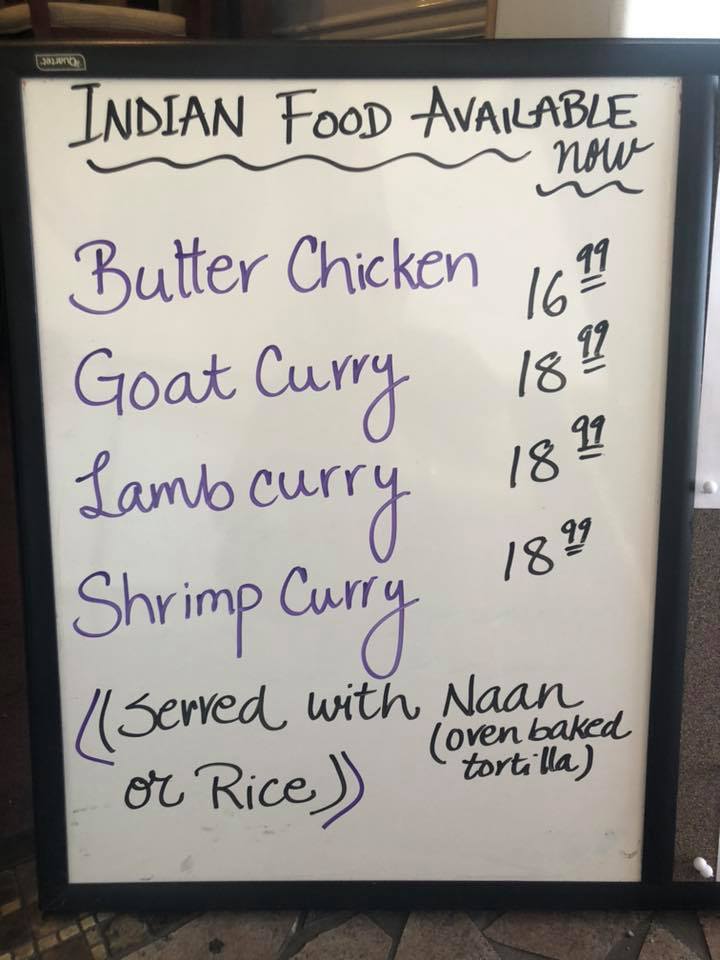 Quartet
INDIAN FOOD AVAILABLE
now
Butter Chicken 16 99
Goat Curry 18 99
Lamb curry 18 99
Shrimp Curry 18 99
((Served with Naan
(oven baked
tortilla)
or Rice))